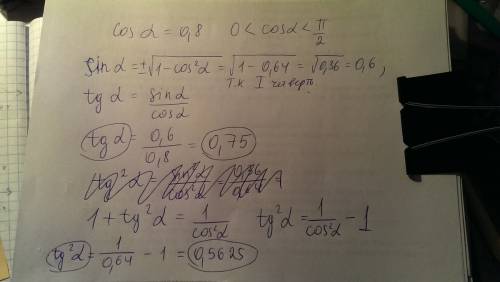 cos α = 0,8   0 < cos α < π/2
sin α = ±√(1 − cos²α) = √(1 − 0,64) = √0,36 = 0,6,
т.к I четверть
tg α = sin α / cos α
tg α = 0,6 / 0,8 = 0,75
1 + tg²α = 1 / cos²α   tg²α = 1 / cos²α − 1
tg²α = 1 / 0,64 − 1 = 0,5625